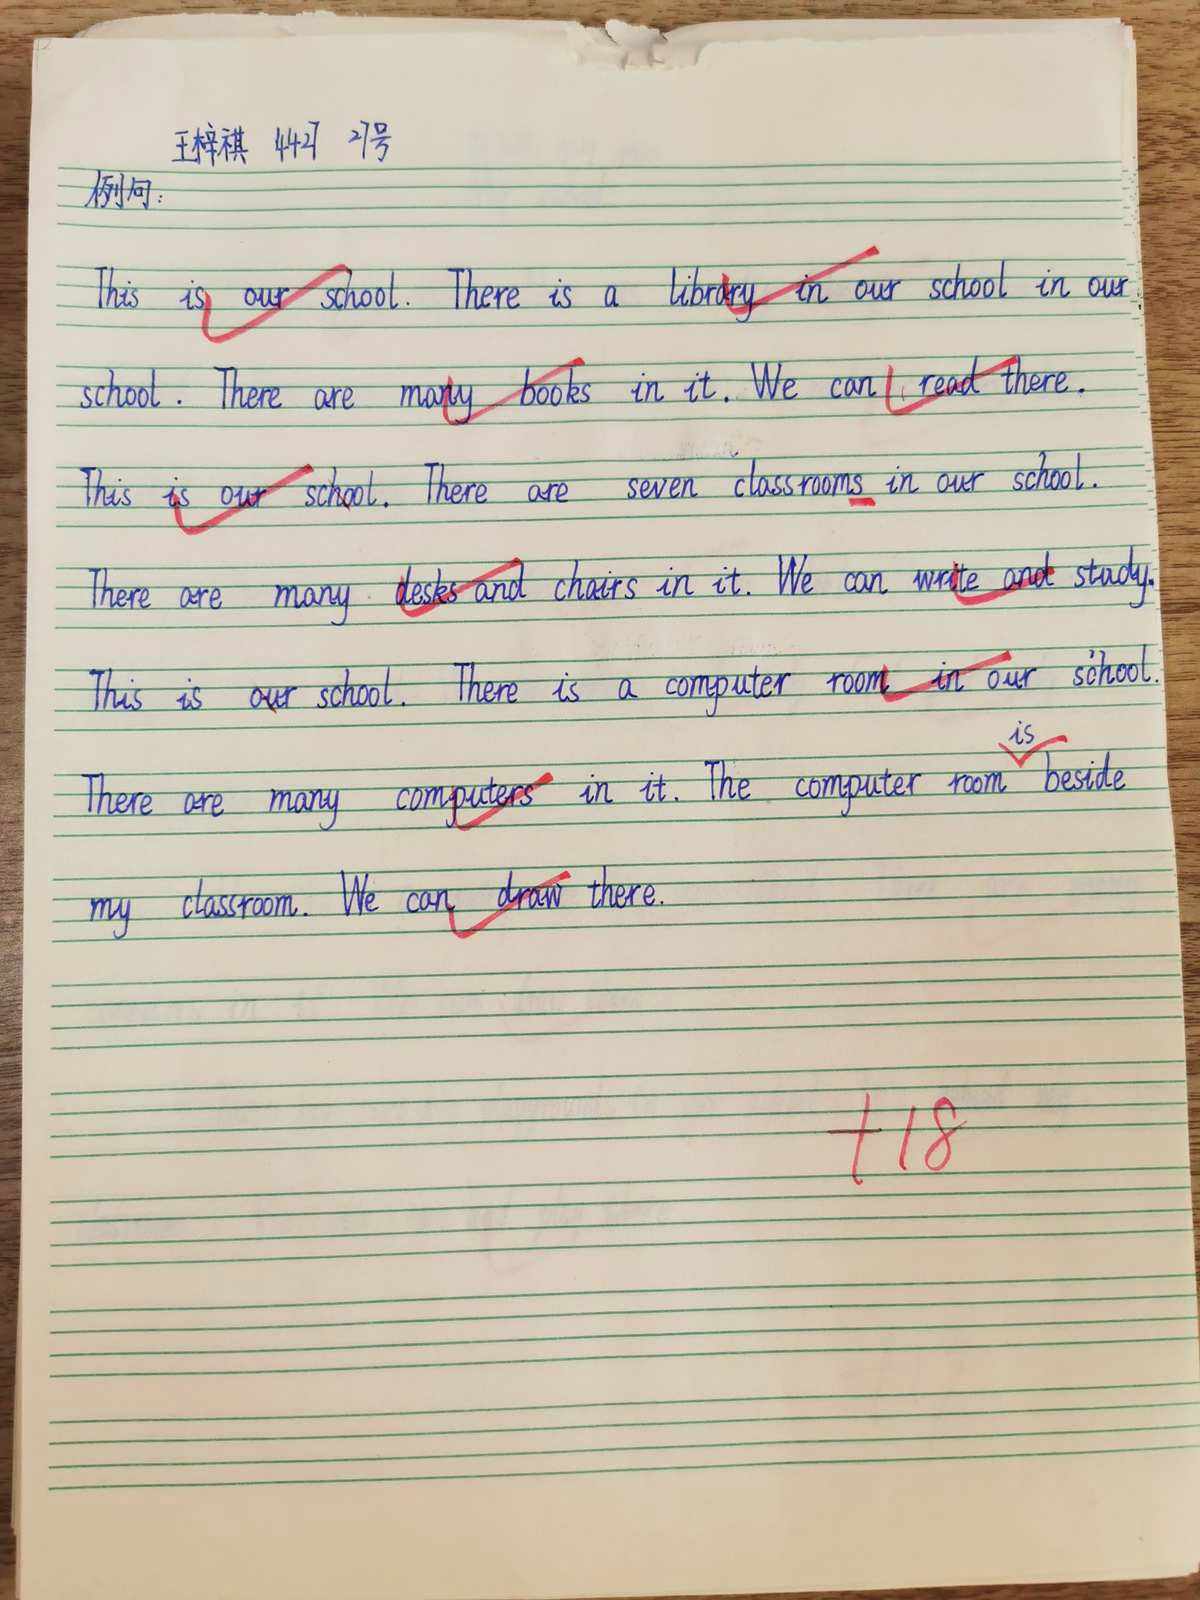 王梓祺 4427 27号
例句:
This is our school. There is a library in our school in our
school. There are many books in it. We can read there.
This is our school. There are seven classrooms in our school.
There are many desks and chairs in it. We can write and study.
This is our school. There is a computer room in our school.
is
There are many computers in it. The computer room beside
my classroom. We can draw there.
+18